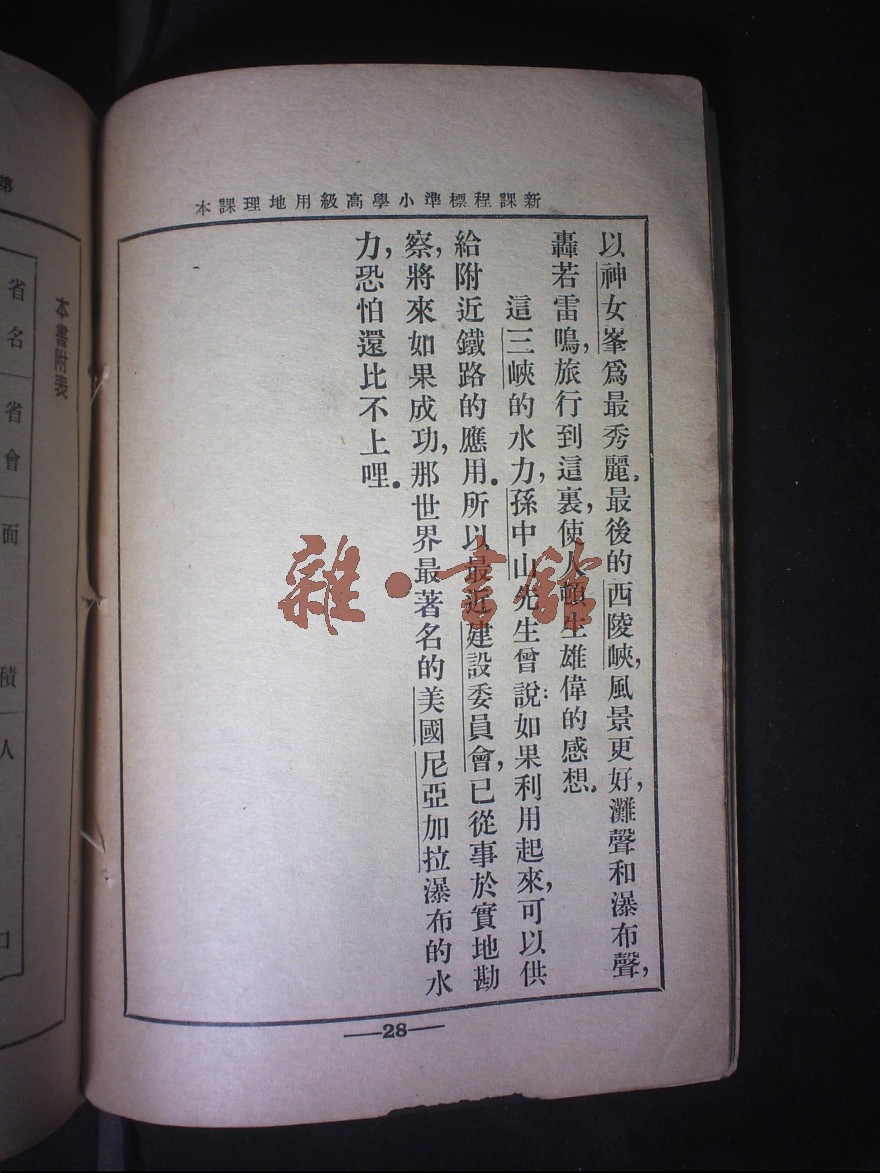 新課程標準小學高級用地理課本
以神女峯爲最秀麗。最後的西陵峽,風景更好,灘聲和瀑布聲,
轟若雷鳴,旅行到這裏,使人頓生雄偉的感想。
這三峽的水力,孫中山先生曾說:如果利用起來,可以供
給附近鐵路的應用。所以最近建設委員會,已從事於實地勘
察,將來如果成功,那世界最著名的美國尼亞加拉瀑布的水
力,恐怕還比不上哩。
—28—
雜·書館
第
本書附表
省名
省會
面積
人口